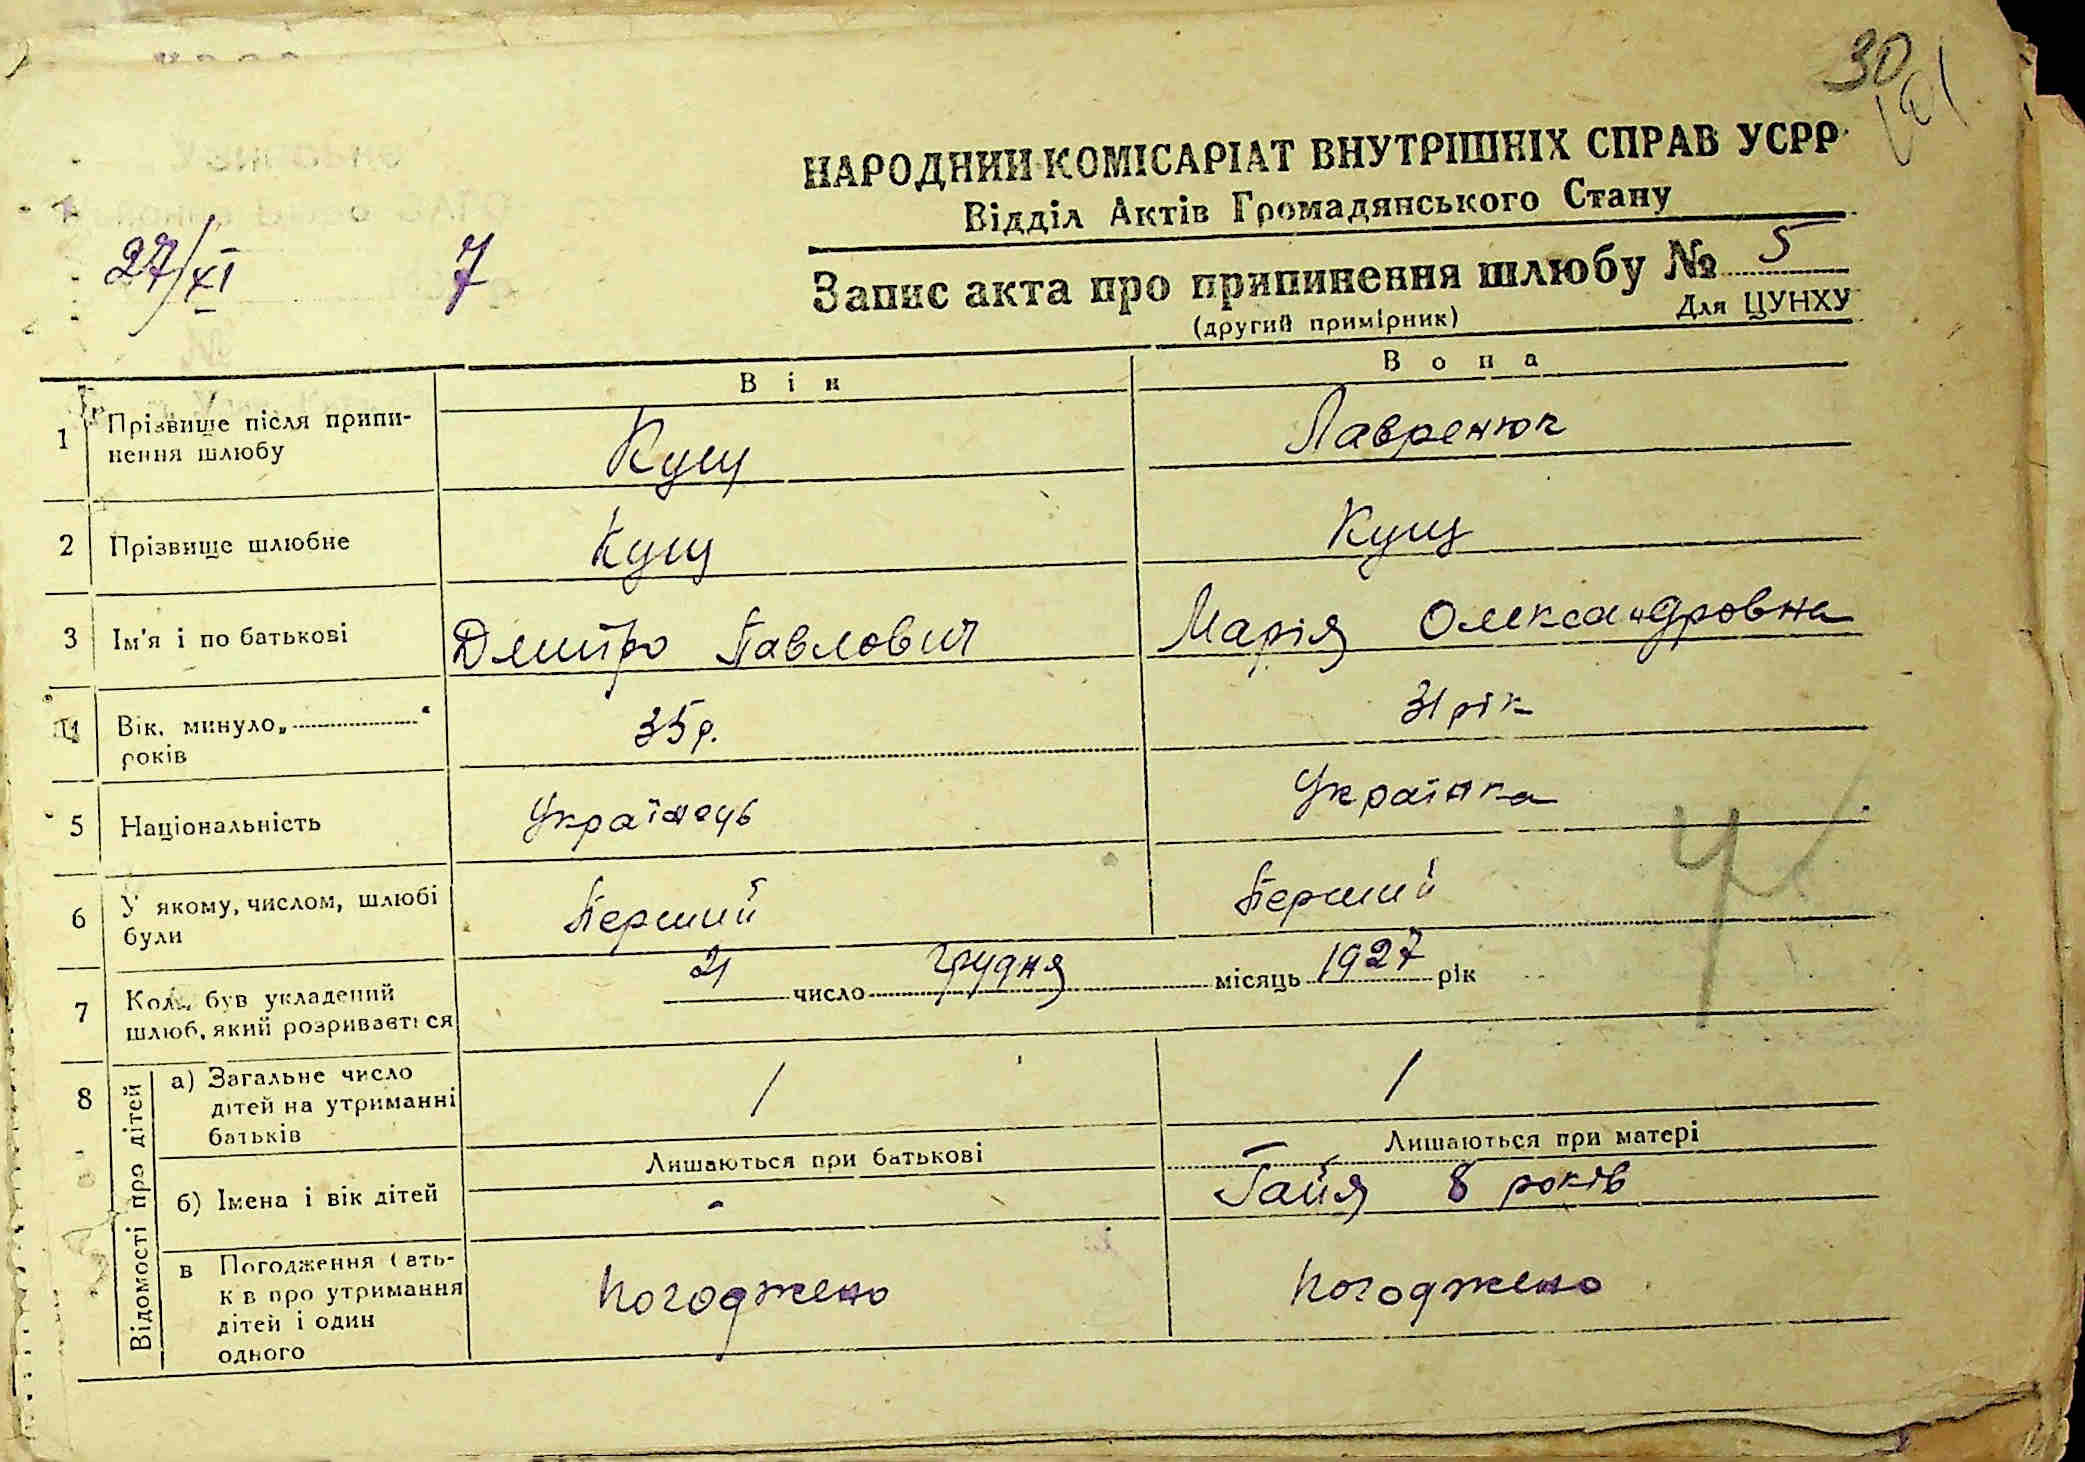 30
НАРОДНИЙ КОМІСАРІАТ ВНУТРІШНІХ СПРАВ УСРР
Відділ Актів Громадянського Стану
27/XI 7
Запис акта про припинення шлюбу № 5
(другий примірник) Для ЦУНХУ
Він Вона
1 Прізвище після припи-
нення шлюбу Кущ Лавренюк
2 Прізвище шлюбне Кущ Кущ
3 Ім'я і по батькові Дмитро Павлович Марія Олександровна
4 Вік, минуло „ “
років 35 р. 31 рік
5 Національність Українець Українка
6 У якому, числом, шлюбі
були Перший Перший
7 Коли був укладений
шлюб, який розривається 21 число грудня місяць 1927 рік
8 Відомості про дітей
а) Загальне число
дітей на утриманні
батьків 1 1
Лишаються при батькові Лишаються при матері
б) Імена і вік дітей - Гайя 8 років
в Погодження бать-
ків про утримання
дітей і один
одного погоджено погоджено